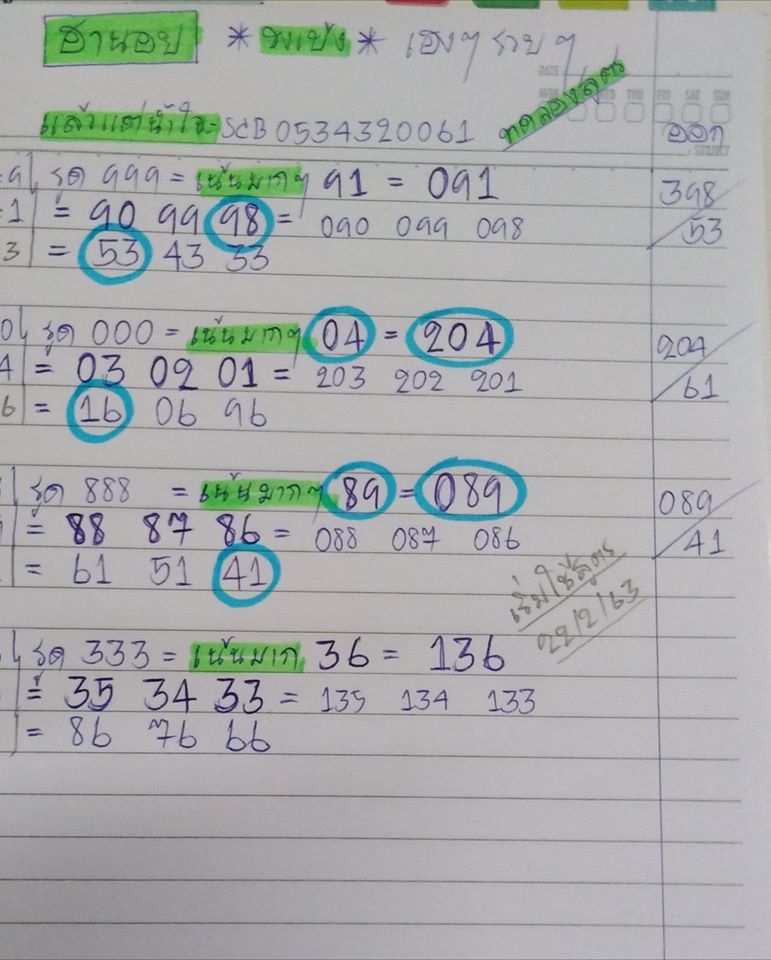 ฮานอย * วงเป้ง * เฮงๆ รวยๆ
ทดลองสูตร
DATE
WED THU FRI SAT SUN
แล้วแต่น้ำใจ = SCB 0534320061 ออก
9 รูด 999 = เน้นมากๆ 91 = 091 398
1 = 90 99 98 = 090 099 098 53
3 = 53 43 33
0 รูด 000 = เน้นมากๆ 04 = 204 204
4 = 03 02 01 = 203 202 201 61
6 = 16 06 96
รูด 888 = เน้นมากๆ 89 = 089 089
= 88 87 86 = 088 087 086 41
= 61 51 41
เริ่มใช้สูตร
22/2/63
รูด 333 = เน้นมาก 36 = 136
= 35 34 33 = 135 134 133
= 86 76 66